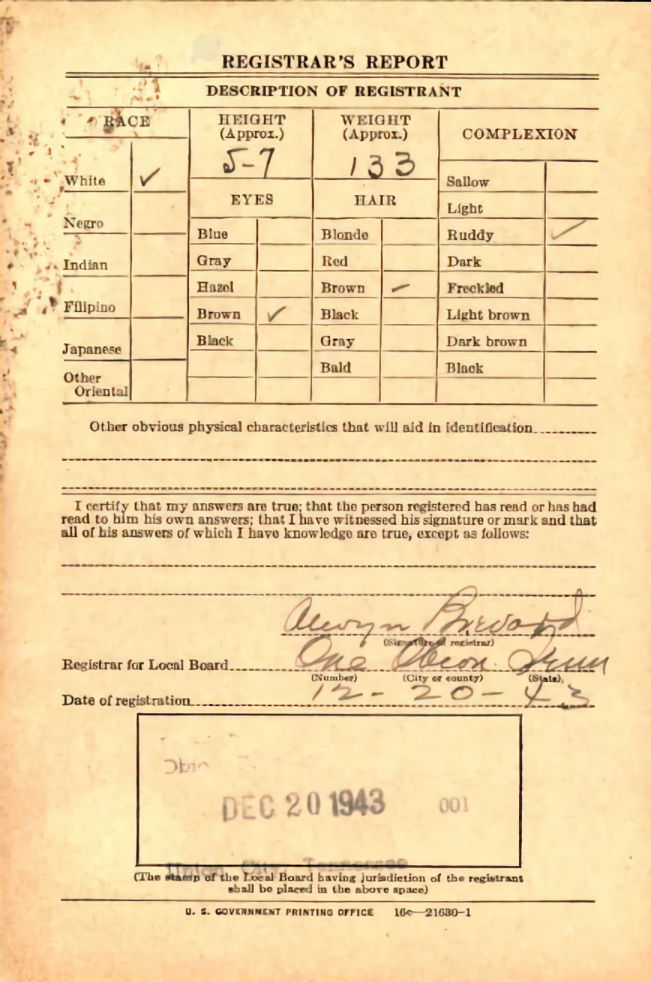 REGISTRAR'S REPORT
DESCRIPTION OF REGISTRANT
RACE
White ✓
Negro
Indian
Filipino
Japanese
Other
Oriental
HEIGHT
(Approx.)
5-7
WEIGHT
(Approx.)
133
EYES
Blue
Gray
Hazel
Brown ✓
Black
HAIR
Blonde
Red
Brown ✓
Black
Gray
Bald
COMPLEXION
Sallow
Light
Ruddy ✓
Dark
Freckled
Light brown
Dark brown
Black
Other obvious physical characteristics that will aid in identification
I certify that my answers are true; that the person registered has read or has had
read to him his own answers; that I have witnessed his signature or mark and that
all of his answers of which I have knowledge are true, except as follows:
(Signature of registrar)
Registrar for Local Board One Obion Tenn
(Number) (City or county) (State)
Date of registration 12-20-43
DEC 20 1943 001
Union City, Tennessee
(The stamp of the Local Board having jurisdiction of the registrant
shall be placed in the above space)
U. S. GOVERNMENT PRINTING OFFICE 16c—21630-1